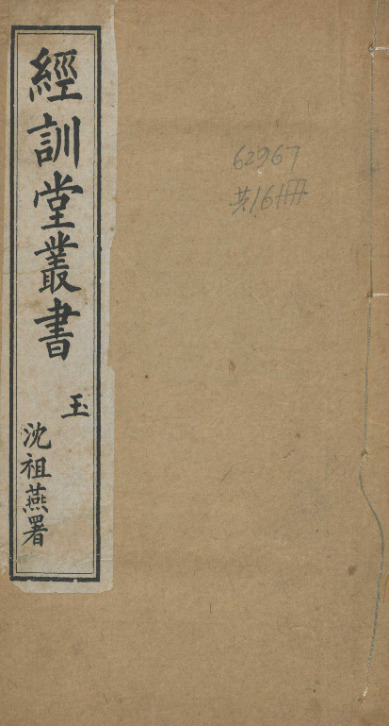 經訓堂叢書
玉
沈祖燕署
62967
共16冊